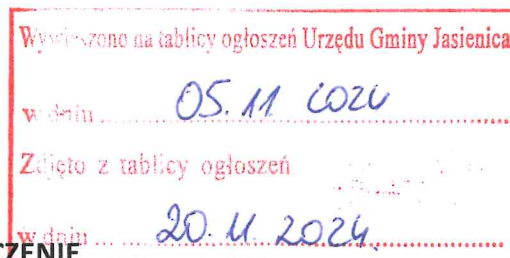 Wywieszono na tablicy ogłoszeń Urzędu Gminy Jasienica
w dniu ........ 05. 11 2024 ........
Zdjęto z tablicy ogłoszeń
w dniu ........ 20. 11. 2024. ........
CZENIE